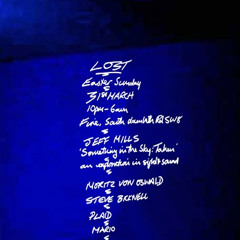 LOST
&
Easter Sunday
&
31st MARCH
10pm - 6am
Fire, South Lambeth Rd SW8
&
JEFF MILLS
'Something in the Sky: Taken'
an exploration in sight & sound
&
MORITZ VON OSWALD
&
STEVE BICKNELL
&
PLAID
&
MARIO
&